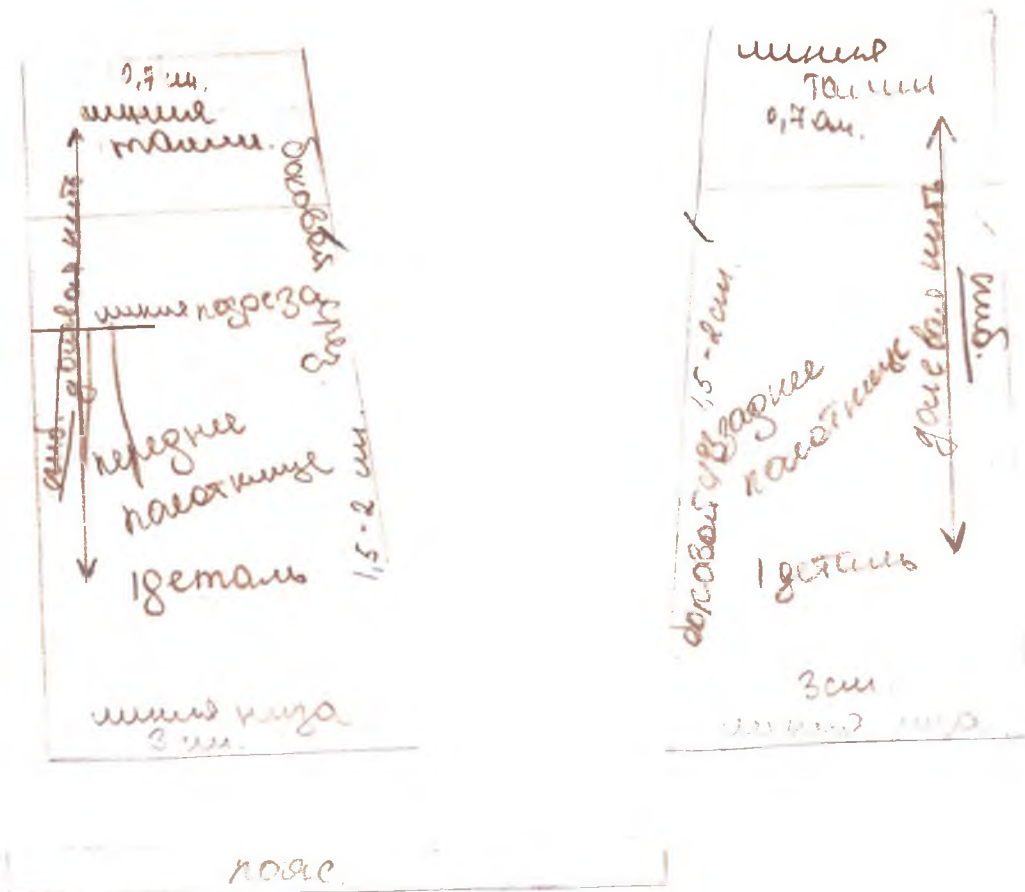 0,7 см.
линия
талии.
боковой срез
долевая нить
линия подреза
сгиб.
переднее
полотнище
1,5-2 см.
1 деталь
линия низа
3 см.
линия
талии
0,7 см.
долевая нить
сгиб.
1,5-2 см.
боковой срез
заднее
полотнище
1 деталь
3 см
линия низа
пояс.